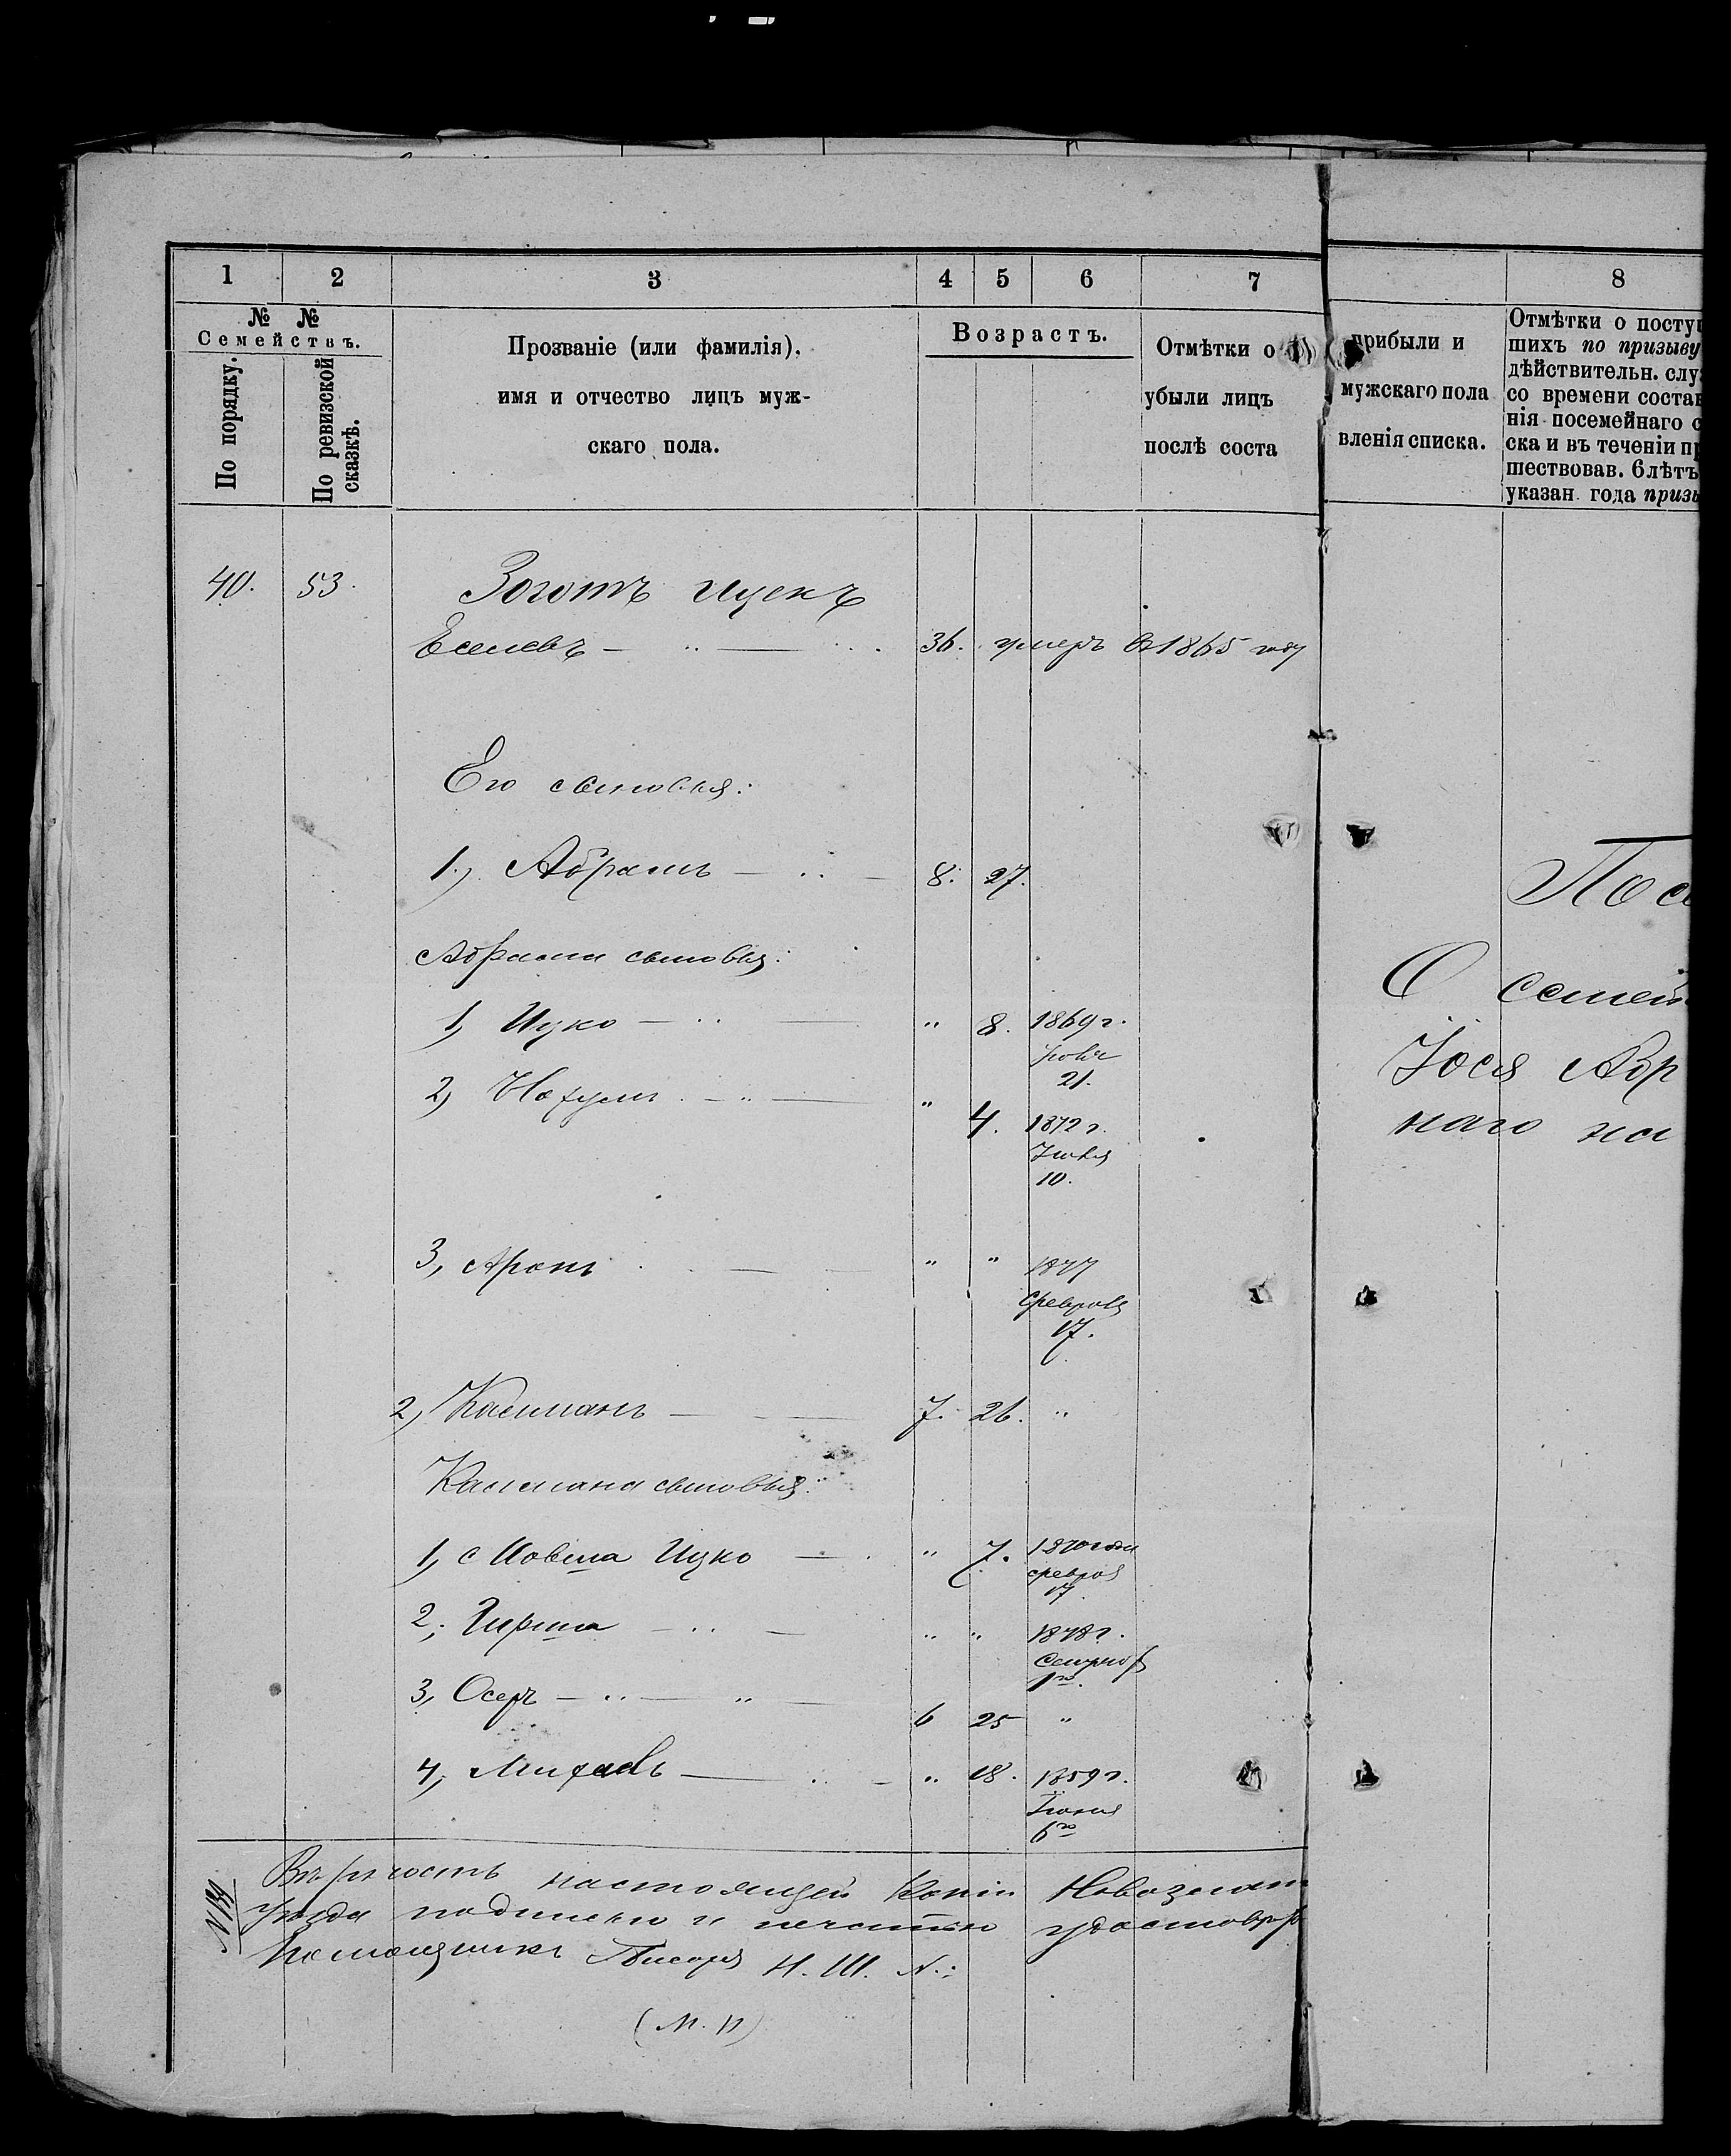 1 2 3 4 5 6 7 8
№ №
Семействъ.
По порядку.
По ревизской
сказкѣ.
Прозваніе (или фамилія),
имя и отчество лицъ муж-
скаго пола.
Возрастъ.
Отмѣтки о
убыли лицъ
послѣ соста
прибыли и
мужскаго пола
вленія списка.
Отмѣтки о посту
шихъ по призыву
дѣйствительн. слу
со времени состав
нія посемейнаго с
ска и въ теченіи пр
шествовав. 6 лѣтъ
указан. года призы
40. 53. Зоготъ Ицекъ
36. умеръ въ 1865 году
Его сыновья:
1) Абрамъ 8. 27.
Абрама сыновья:
1) Ицко " 8. 1869 г.
21.
2) Нахумъ " 4. 1872 г.
10.
3, Аронъ " " 1877
Февраля
17.
2) Калманъ 7. 26. "
Калмана сыновья:
1, Ицко " 7. 1870 года
феврал
17.
2; Гирша " " 1878 г.
3, Осеръ 6 25 "
4, " 18. 1859 г.
Іюня
6го
NB Вѣрность настоящей Копіи
уѣзда подписью и печатью удостовѣр
Помощникъ Писаря Н. Ш. N.:
(М. П)
Пос
О семей
Іося Абр
наго на